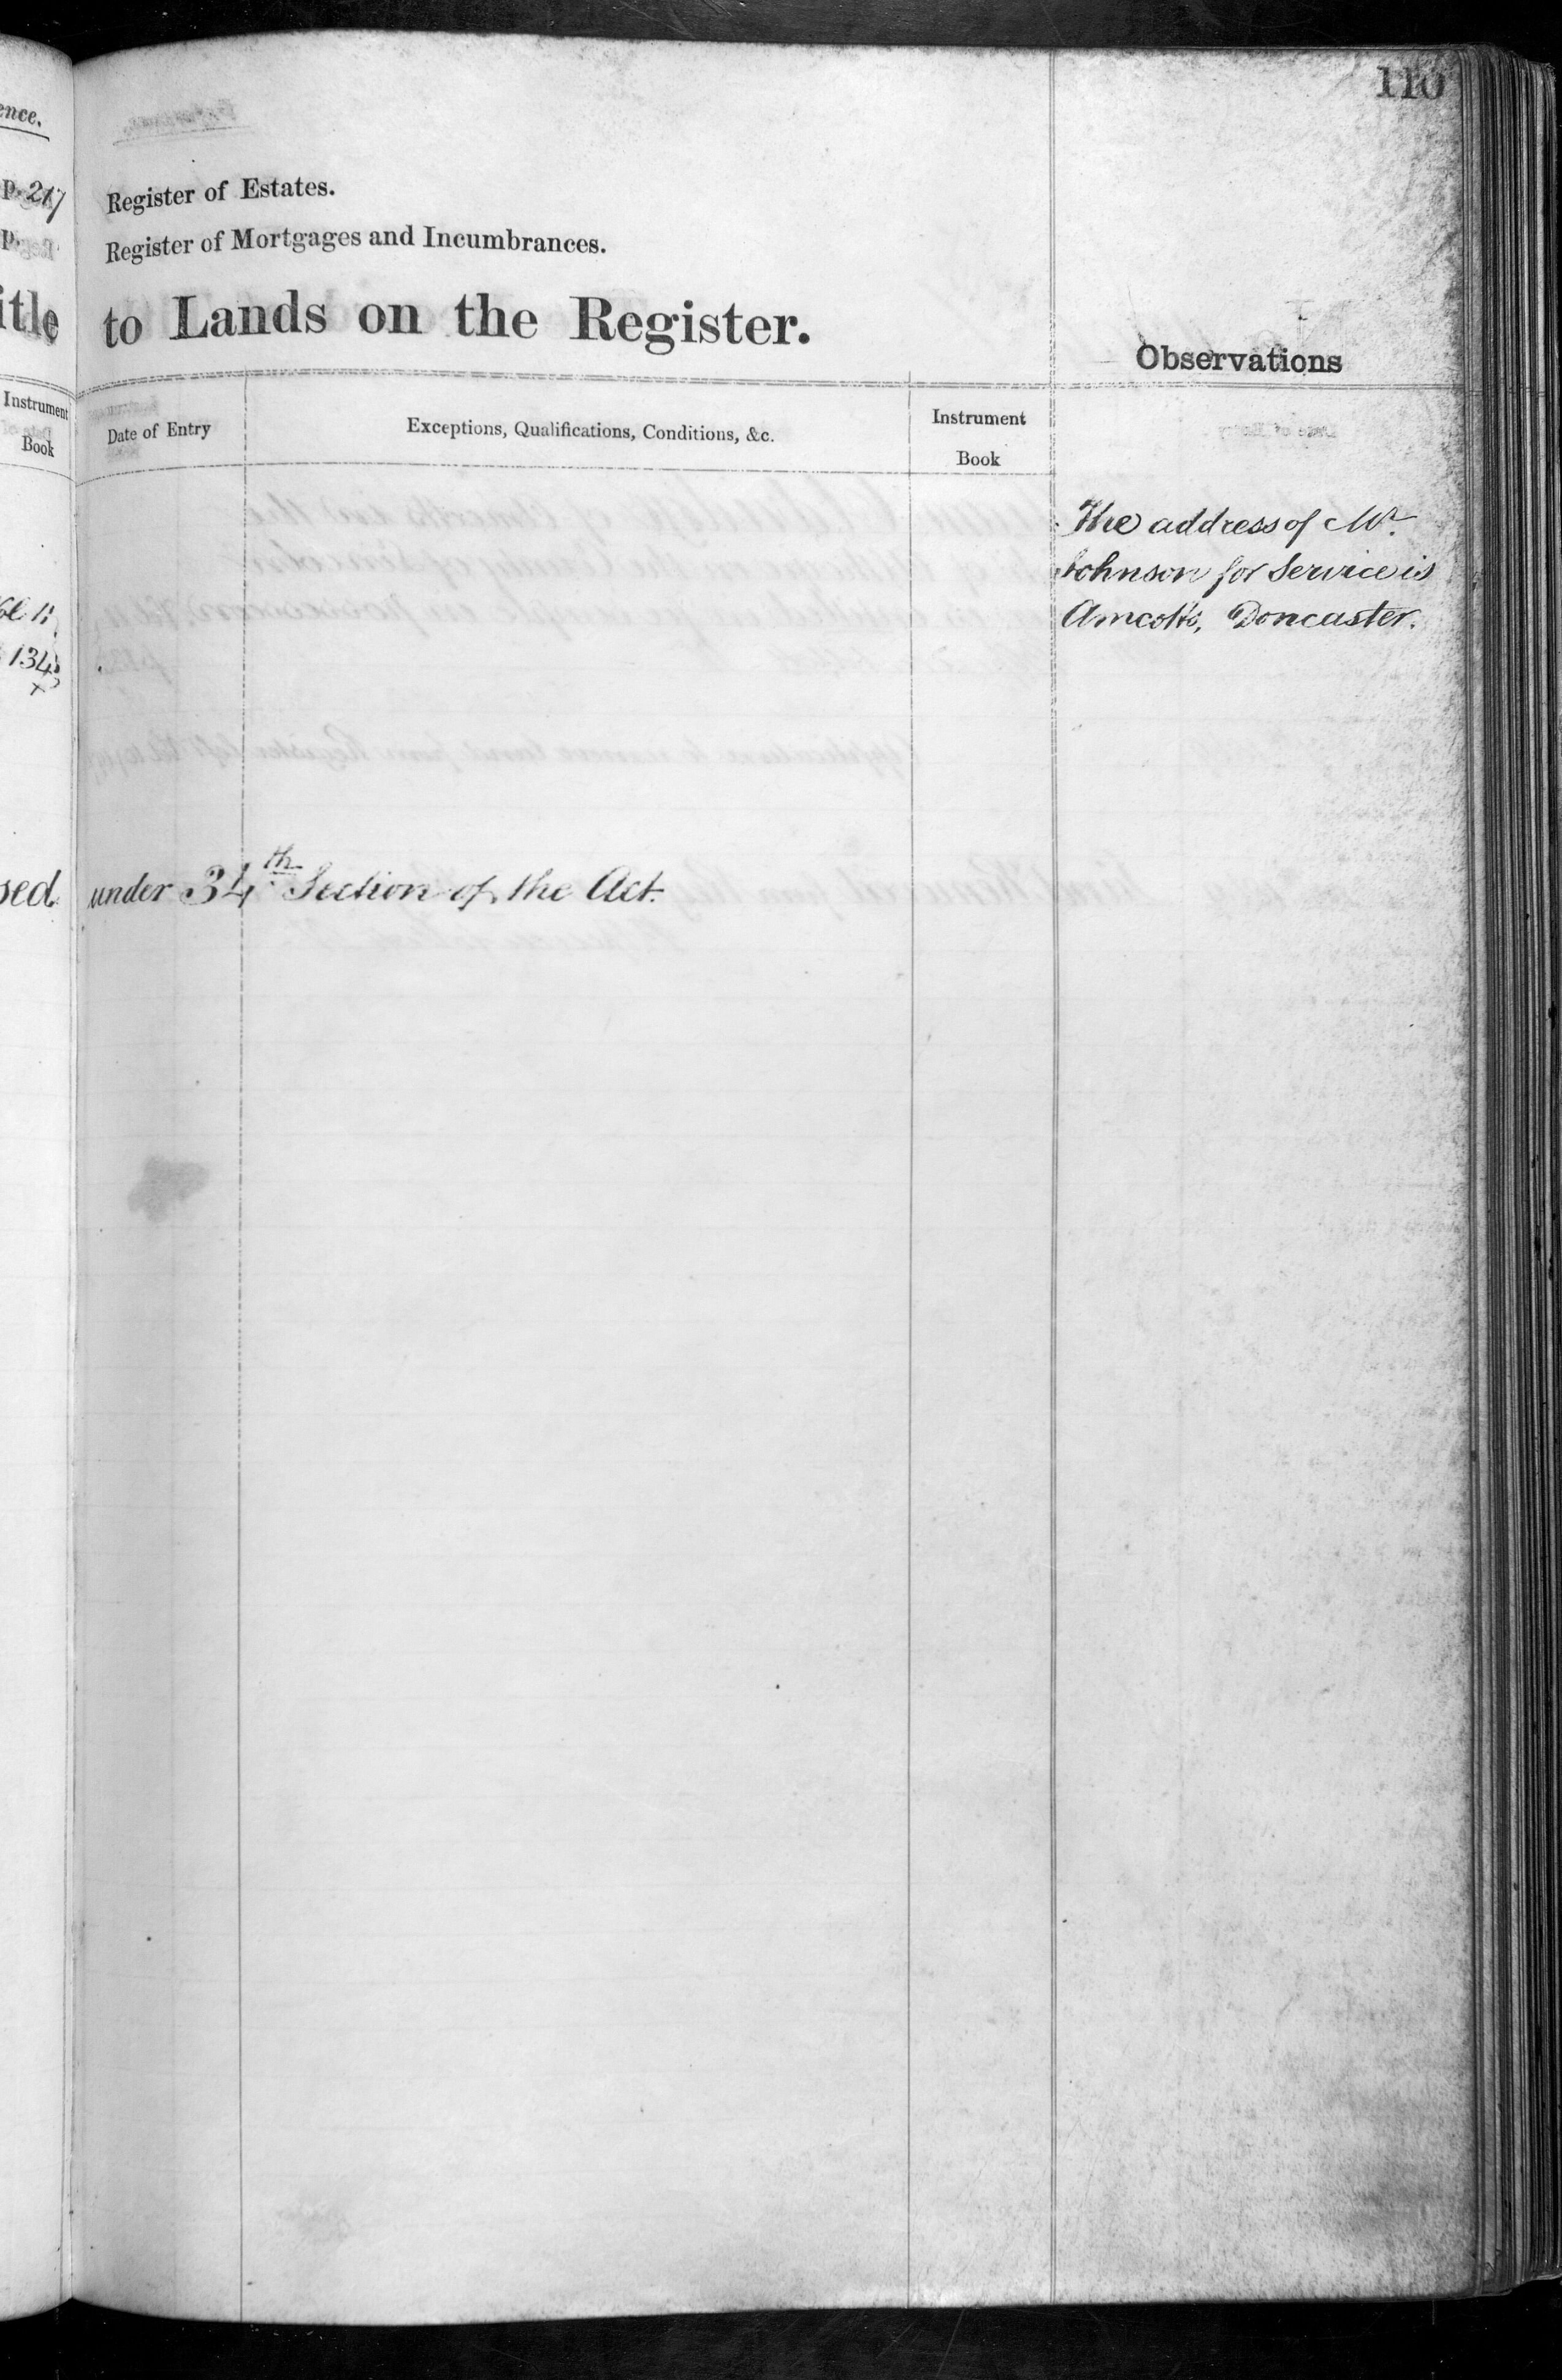 110
ence.
p. 217
p.
itle
Instrument
Book
134
sed
Register of Estates.
Register of Mortgages and Incumbrances.
to Lands on the Register.
Observations
Date of Entry
Exceptions, Qualifications, Conditions, &c.
Instrument
Book
The address of Mr.
Johnson for Service is
Amcotts, Doncaster.
under 34th Section of the Act.